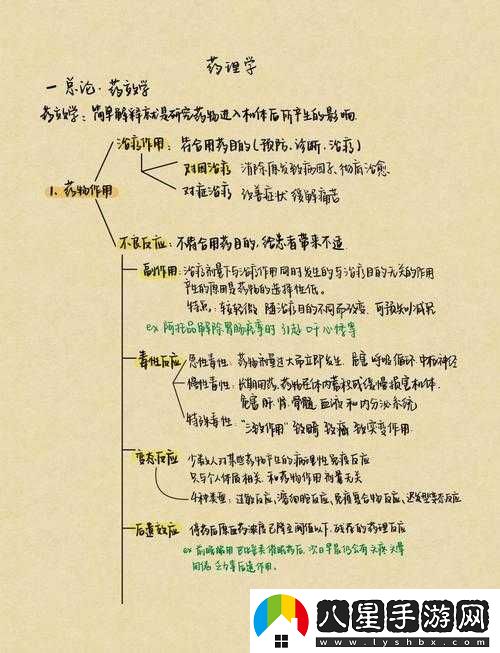 药理学
一 总论·药效学
药效学：简单解释就是研究药物进入机体后所产生的影响.
治疗作用：符合用药目的(预防、诊断、治疗)
对因治疗 消除原发致病因子、彻底治愈.
对症治疗 改善症状 缓解痛苦
1、药物作用
不良反应：不符合用药目的,给患者带来不适
副作用：治疗剂量下与治疗作用同时发生的与治疗目的无关的作用
产生的原因是药物的选择性低。
特点：较轻微 随治疗目的不同而改变、可预知难减
ex 阿托品解除胃肠痉挛时 引起 口干 心悸等
毒性反应
急性毒性：药物剂量过大而立即发生，危害 呼吸 循环 中枢神经
慢性毒性：长期用药,药物在体内蓄积或缓慢损害机体.
危害 肝.肾.骨髓 血液 和内分泌系统
特殊毒性："三致作用" 致畸 致癌 致突变作用
变态反应
少数人对某些药物产生的病理性免疫反应
只与个人体质相关,和药物作用剂量无关
4种类型：过敏反应、溶细胞反应、免疫复合物反应、迟发型变态反应
后遗效应 停药后原血药浓度已降至阈值以下,残存的药理反应
ex 前晚服用巴比妥类催眠药后,次日早晨仍会有头疼 头晕
困倦 乏力等后遗作用.
八星手游网
www.lyshbx.com